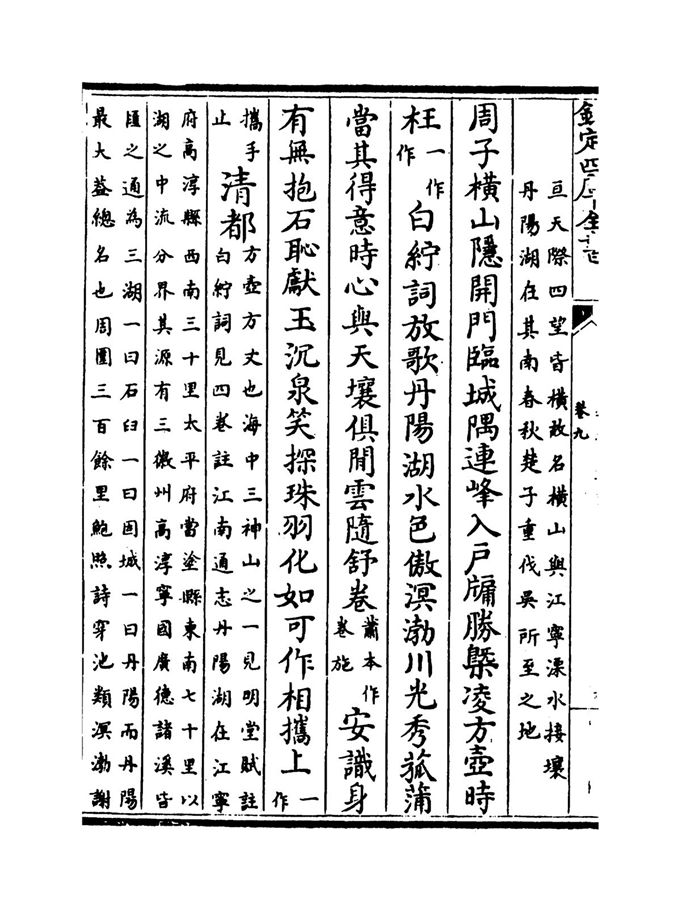 欽定四庫全書 卷九
亘天際四望皆橫故名橫山與江寧溧水接壤
丹陽湖在其南春秋楚子重伐吳所至之地
周子橫山隱開門臨城隅連峰入户牖勝槩凌方壺時
枉一作作白紵詞放歌丹陽湖水色傲溟渤川光秀菰蒲
當其得意時心與天壤俱閒雲隨舒卷蕭本作卷施安識身
有無抱石恥獻玉沉泉笑探珠羽化如可作相攜上一作
攜手止清都方壺方丈也海中三神山之一見明堂賦註
白紵詞見四卷註江南通志丹陽湖在江寧
府高淳縣西南三十里太平府當塗縣東南七十里以
湖之中流分界其源有三徽州高淳寧國廣德諸溪皆
匯之通為三湖一曰石臼一曰固城一曰丹陽而丹陽
最大葢總名也周圍三百餘里鮑照詩穿池類溟渤謝